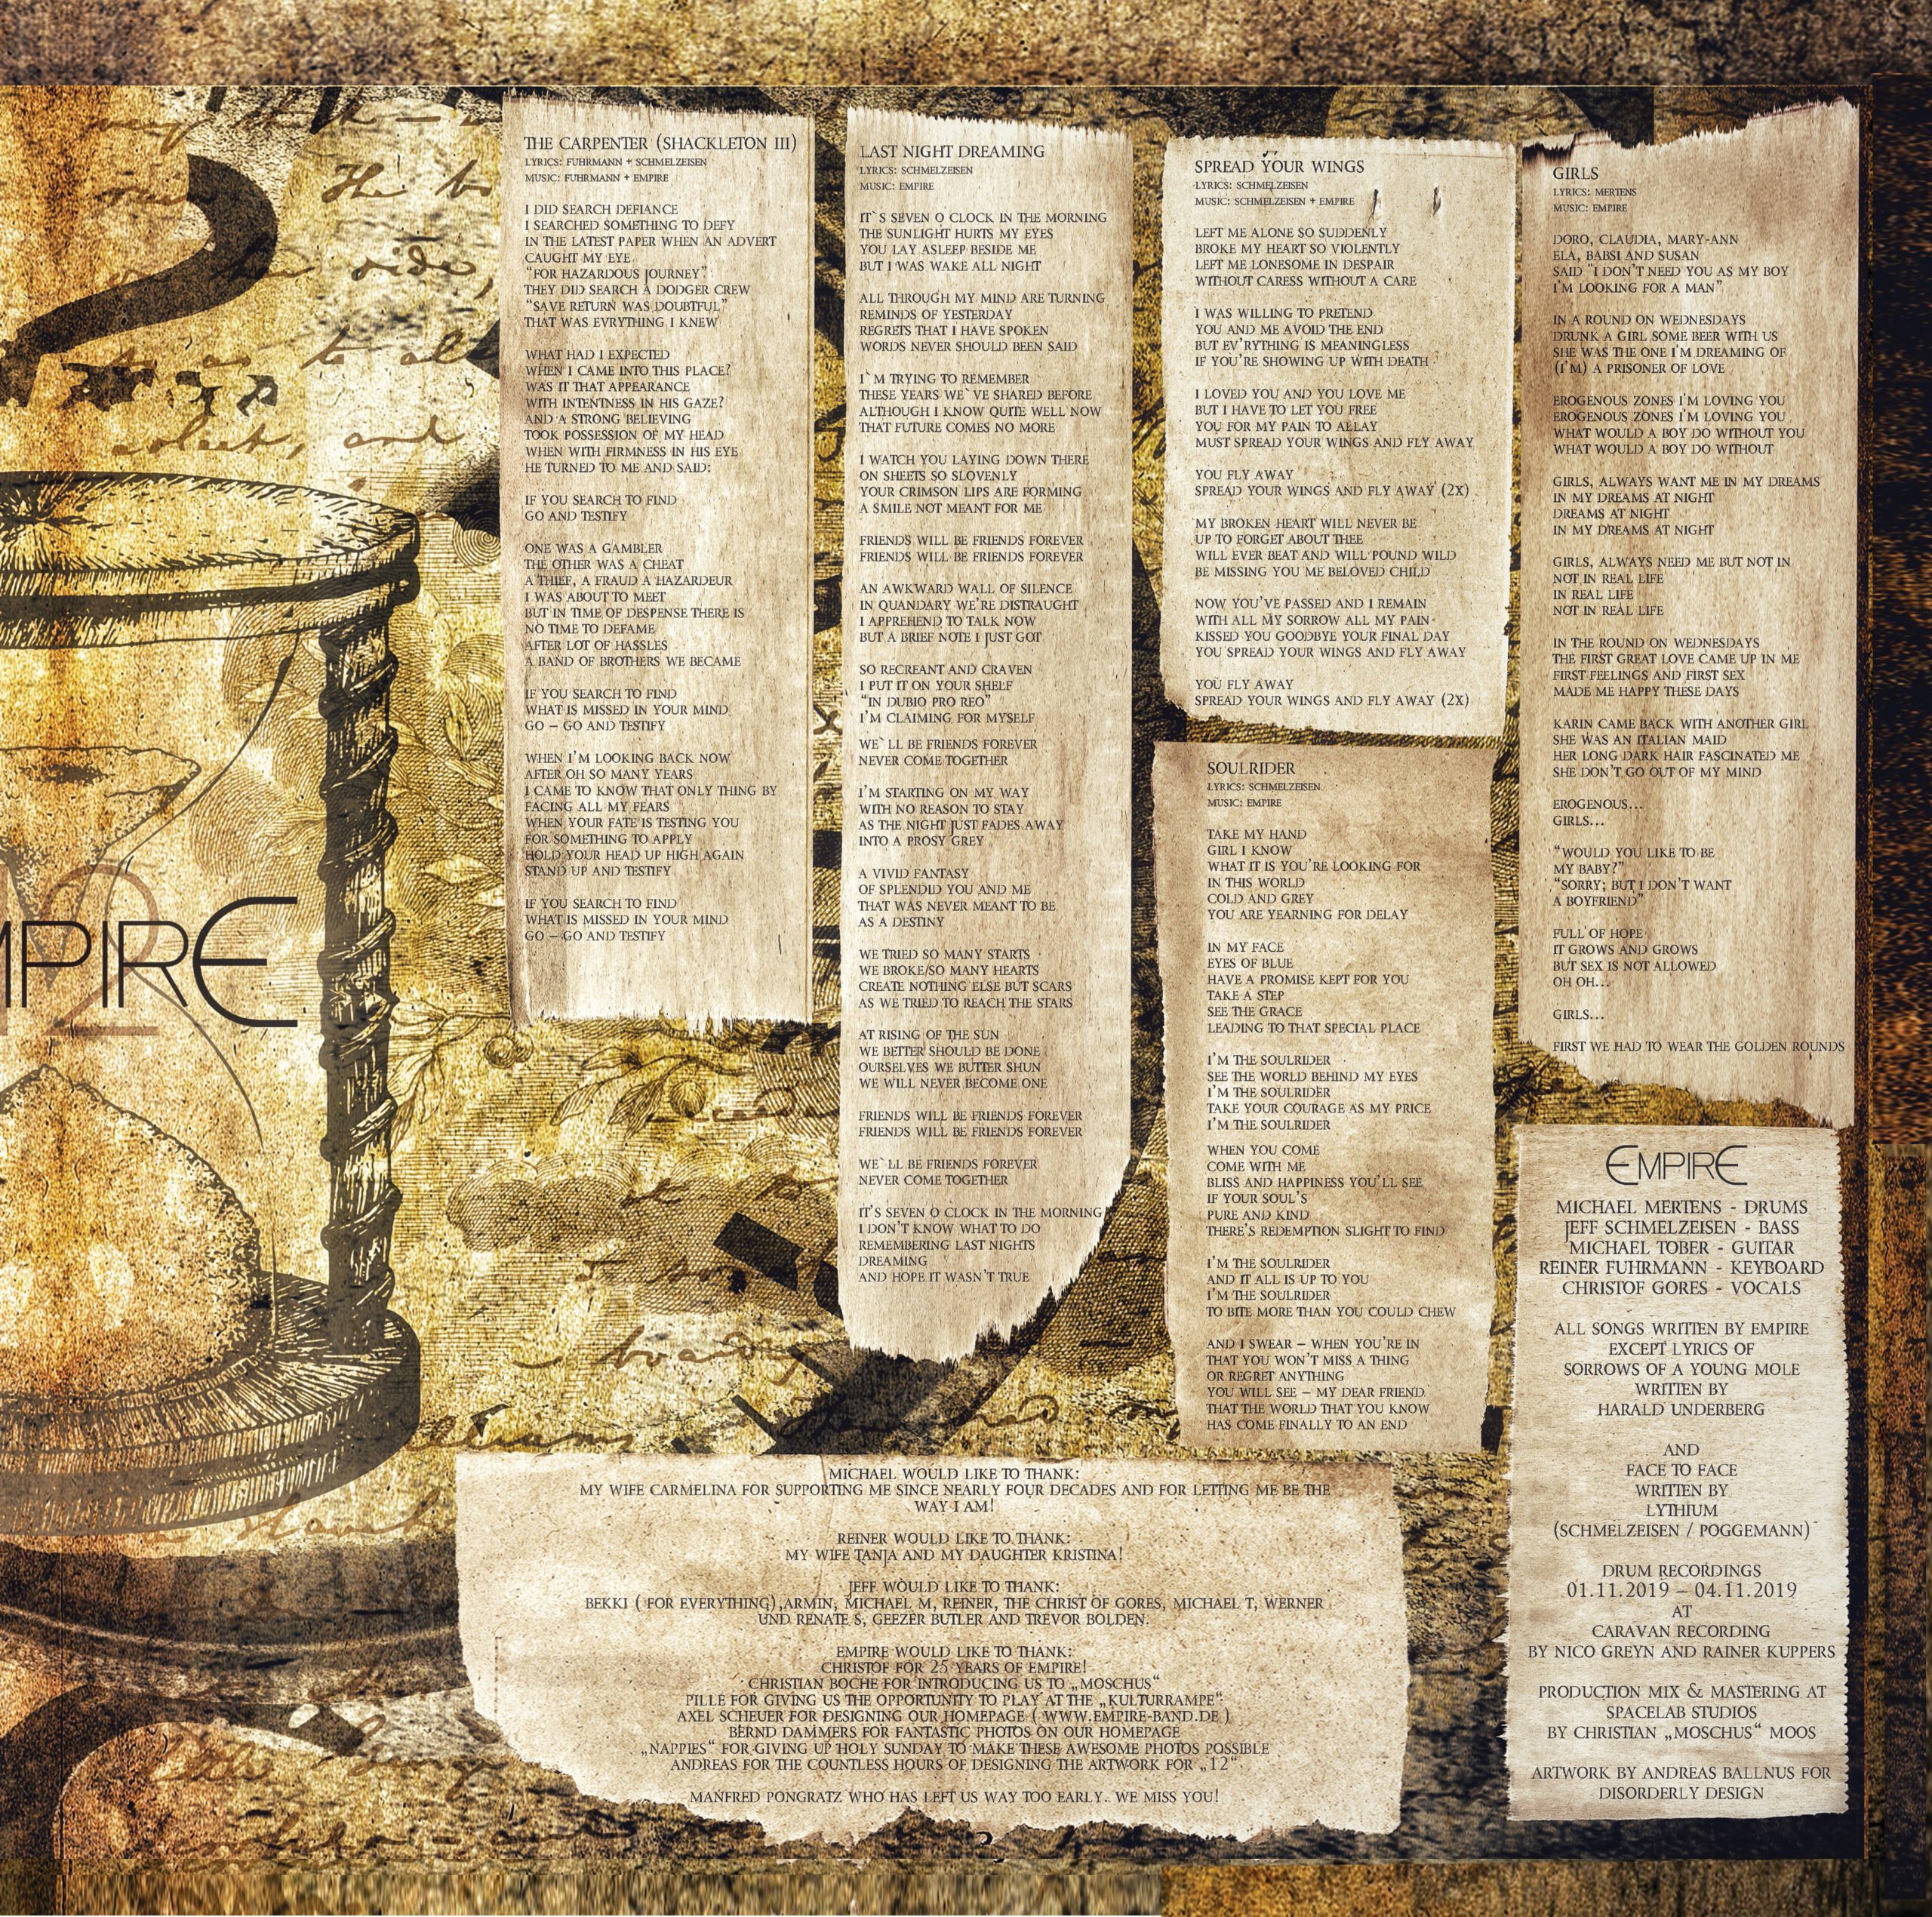 THE CARPENTER (SHACKLETON III)
LYRICS: FUHRMANN + SCHMELZEISEN
MUSIC: FUHRMANN + EMPIRE
I DID SEARCH DEFIANCE
I SEARCHED SOMETHING TO DEFY
IN THE LATEST PAPER WHEN AN ADVERT
CAUGHT MY EYE
"FOR HAZARDOUS JOURNEY"
THEY DID SEARCH A DODGER CREW
"SAVE RETURN WAS DOUBTFUL"
THAT WAS EVRYTHING I KNEW
WHAT HAD I EXPECTED
WHEN I CAME INTO THIS PLACE?
WAS IT THAT APPEARANCE
WITH INTENTNESS IN HIS GAZE?
AND A STRONG BELIEVING
TOOK POSSESSION OF MY HEAD
WHEN WITH FIRMNESS IN HIS EYE
HE TURNED TO ME AND SAID:
IF YOU SEARCH TO FIND
GO AND TESTIFY
ONE WAS A GAMBLER
THE OTHER WAS A CHEAT
A THIEF, A FRAUD A HAZARDEUR
I WAS ABOUT TO MEET
BUT IN TIME OF DESPENSE THERE IS
NO TIME TO DEFAME
AFTER LOT OF HASSLES
A BAND OF BROTHERS WE BECAME
IF YOU SEARCH TO FIND
WHAT IS MISSED IN YOUR MIND
GO – GO AND TESTIFY
WHEN I'M LOOKING BACK NOW
AFTER OH SO MANY YEARS
I CAME TO KNOW THAT ONLY THING BY
FACING ALL MY FEARS
WHEN YOUR FATE IS TESTING YOU
FOR SOMETHING TO APPLY
HOLD YOUR HEAD UP HIGH AGAIN
STAND UP AND TESTIFY
IF YOU SEARCH TO FIND
WHAT IS MISSED IN YOUR MIND
GO – GO AND TESTIFY
LAST NIGHT DREAMING
LYRICS: SCHMELZEISEN
MUSIC: EMPIRE
IT`S SEVEN O CLOCK IN THE MORNING
THE SUNLIGHT HURTS MY EYES
YOU LAY ASLEEP BESIDE ME
BUT I WAS WAKE ALL NIGHT
ALL THROUGH MY MIND ARE TURNING
REMINDS OF YESTERDAY
REGRETS THAT I HAVE SPOKEN
WORDS NEVER SHOULD BEEN SAID
I`M TRYING TO REMEMBER
THESE YEARS WE`VE SHARED BEFORE
ALTHOUGH I KNOW QUITE WELL NOW
THAT FUTURE COMES NO MORE
I WATCH YOU LAYING DOWN THERE
ON SHEETS SO SLOVENLY
YOUR CRIMSON LIPS ARE FORMING
A SMILE NOT MEANT FOR ME
FRIENDS WILL BE FRIENDS FOREVER
FRIENDS WILL BE FRIENDS FOREVER
AN AWKWARD WALL OF SILENCE
IN QUANDARY WE'RE DISTRAUGHT
I APPREHEND TO TALK NOW
BUT A BRIEF NOTE I JUST GOT
SO RECREANT AND CRAVEN
I PUT IT ON YOUR SHELF
"IN DUBIO PRO REO"
I'M CLAIMING FOR MYSELF
WE`LL BE FRIENDS FOREVER
NEVER COME TOGETHER
I'M STARTING ON MY WAY
WITH NO REASON TO STAY
AS THE NIGHT JUST FADES AWAY
INTO A PROSY GREY
A VIVID FANTASY
OF SPLENDID YOU AND ME
THAT WAS NEVER MEANT TO BE
AS A DESTINY
WE TRIED SO MANY STARTS
WE BROKE SO MANY HEARTS
CREATE NOTHING ELSE BUT SCARS
AS WE TRIED TO REACH THE STARS
AT RISING OF THE SUN
WE BETTER SHOULD BE DONE
OURSELVES WE BUTTER SHUN
WE WILL NEVER BECOME ONE
FRIENDS WILL BE FRIENDS FOREVER
FRIENDS WILL BE FRIENDS FOREVER
WE`LL BE FRIENDS FOREVER
NEVER COME TOGETHER
IT'S SEVEN O CLOCK IN THE MORNING
I DON'T KNOW WHAT TO DO
REMEMBERING LAST NIGHTS
DREAMING
AND HOPE IT WASN'T TRUE
SPREAD YOUR WINGS
LYRICS: SCHMELZEISEN
MUSIC: SCHMELZEISEN + EMPIRE
LEFT ME ALONE SO SUDDENLY
BROKE MY HEART SO VIOLENTLY
LEFT ME LONESOME IN DESPAIR
WITHOUT CARESS WITHOUT A CARE
I WAS WILLING TO PRETEND
YOU AND ME AVOID THE END
BUT EV'RYTHING IS MEANINGLESS
IF YOU'RE SHOWING UP WITH DEATH
I LOVED YOU AND YOU LOVE ME
BUT I HAVE TO LET YOU FREE
YOU FOR MY PAIN TO ALLAY
MUST SPREAD YOUR WINGS AND FLY AWAY
YOU FLY AWAY
SPREAD YOUR WINGS AND FLY AWAY (2X)
MY BROKEN HEART WILL NEVER BE
UP TO FORGET ABOUT THEE
WILL EVER BEAT AND WILL POUND WILD
BE MISSING YOU ME BELOVED CHILD
NOW YOU'VE PASSED AND I REMAIN
WITH ALL MY SORROW ALL MY PAIN
KISSED YOU GOODBYE YOUR FINAL DAY
YOU SPREAD YOUR WINGS AND FLY AWAY
YOU FLY AWAY
SPREAD YOUR WINGS AND FLY AWAY (2X)
SOULRIDER
LYRICS: SCHMELZEISEN
MUSIC: EMPIRE
TAKE MY HAND
GIRL I KNOW
WHAT IT IS YOU'RE LOOKING FOR
IN THIS WORLD
COLD AND GREY
YOU ARE YEARNING FOR DELAY
IN MY FACE
EYES OF BLUE
HAVE A PROMISE KEPT FOR YOU
TAKE A STEP
SEE THE GRACE
LEADING TO THAT SPECIAL PLACE
I'M THE SOULRIDER
SEE THE WORLD BEHIND MY EYES
I'M THE SOULRIDER
TAKE YOUR COURAGE AS MY PRICE
I'M THE SOULRIDER
WHEN YOU COME
COME WITH ME
BLISS AND HAPPINESS YOU'LL SEE
IF YOUR SOUL'S
PURE AND KIND
THERE'S REDEMPTION SLIGHT TO FIND
I'M THE SOULRIDER
AND IT ALL IS UP TO YOU
I'M THE SOULRIDER
TO BITE MORE THAN YOU COULD CHEW
AND I SWEAR – WHEN YOU'RE IN
THAT YOU WON'T MISS A THING
OR REGRET ANYTHING
YOU WILL SEE – MY DEAR FRIEND
THAT THE WORLD THAT YOU KNOW
HAS COME FINALLY TO AN END
GIRLS
LYRICS: MERTENS
MUSIC: EMPIRE
DORO, CLAUDIA, MARY-ANN
ELA, BABSI AND SUSAN
SAID "I DON'T NEED YOU AS MY BOY
I'M LOOKING FOR A MAN"
IN A ROUND ON WEDNESDAYS
DRUNK A GIRL SOME BEER WITH US
SHE WAS THE ONE I'M DREAMING OF
(I'M) A PRISONER OF LOVE
EROGENOUS ZONES I'M LOVING YOU
EROGENOUS ZONES I'M LOVING YOU
WHAT WOULD A BOY DO WITHOUT YOU
WHAT WOULD A BOY DO WITHOUT
GIRLS, ALWAYS WANT ME IN MY DREAMS
IN MY DREAMS AT NIGHT
DREAMS AT NIGHT
IN MY DREAMS AT NIGHT
GIRLS, ALWAYS NEED ME BUT NOT IN
NOT IN REAL LIFE
IN REAL LIFE
NOT IN REAL LIFE
IN THE ROUND ON WEDNESDAYS
THE FIRST GREAT LOVE CAME UP IN ME
FIRST FEELINGS AND FIRST SEX
MADE ME HAPPY THESE DAYS
KARIN CAME BACK WITH ANOTHER GIRL
SHE WAS AN ITALIAN MAID
HER LONG DARK HAIR FASCINATED ME
SHE DON'T GO OUT OF MY MIND
EROGENOUS...
GIRLS...
"WOULD YOU LIKE TO BE
MY BABY?"
"SORRY; BUT I DON'T WANT
A BOYFRIEND"
FULL OF HOPE
IT GROWS AND GROWS
BUT SEX IS NOT ALLOWED
OH OH...
GIRLS...
FIRST WE HAD TO WEAR THE GOLDEN ROUNDS
EMPIRE
MICHAEL MERTENS - DRUMS
JEFF SCHMELZEISEN - BASS
MICHAEL TOBER - GUITAR
REINER FUHRMANN - KEYBOARD
CHRISTOF GORES - VOCALS
ALL SONGS WRITTEN BY EMPIRE
EXCEPT LYRICS OF
SORROWS OF A YOUNG MOLE
WRITTEN BY
HARALD UNDERBERG
AND
FACE TO FACE
WRITTEN BY
LYTHIUM
(SCHMELZEISEN / POGGEMANN)
DRUM RECORDINGS
01.11.2019 – 04.11.2019
AT
CARAVAN RECORDING
BY NICO GREYN AND RAINER KUPPERS
PRODUCTION MIX & MASTERING AT
SPACELAB STUDIOS
BY CHRISTIAN „MOSCHUS“ MOOS
ARTWORK BY ANDREAS BALLNUS FOR
DISORDERLY DESIGN
MICHAEL WOULD LIKE TO THANK:
MY WIFE CARMELINA FOR SUPPORTING ME SINCE NEARLY FOUR DECADES AND FOR LETTING ME BE THE
WAY I AM!
REINER WOULD LIKE TO THANK:
MY WIFE TANJA AND MY DAUGHTER KRISTINA!
JEFF WOULD LIKE TO THANK:
BEKKI ( FOR EVERYTHING),ARMIN, MICHAEL M, REINER, THE CHRIST OF GORES, MICHAEL T, WERNER
UND RENATE S, GEEZER BUTLER AND TREVOR BOLDEN.
EMPIRE WOULD LIKE TO THANK:
CHRISTOF FOR 25 YEARS OF EMPIRE!
CHRISTIAN BOCHE FOR INTRODUCING US TO „MOSCHUS“
PILLE FOR GIVING US THE OPPORTUNITY TO PLAY AT THE „KULTURRAMPE“
AXEL SCHEUER FOR DESIGNING OUR HOMEPAGE ( WWW.EMPIRE-BAND.DE )
BERND DAMMERS FOR FANTASTIC PHOTOS ON OUR HOMEPAGE
„NAPPIES“ FOR GIVING UP HOLY SUNDAY TO MAKE THESE AWESOME PHOTOS POSSIBLE
ANDREAS FOR THE COUNTLESS HOURS OF DESIGNING THE ARTWORK FOR „12“
MANFRED PONGRATZ WHO HAS LEFT US WAY TOO EARLY.. WE MISS YOU!
MPIRE
12